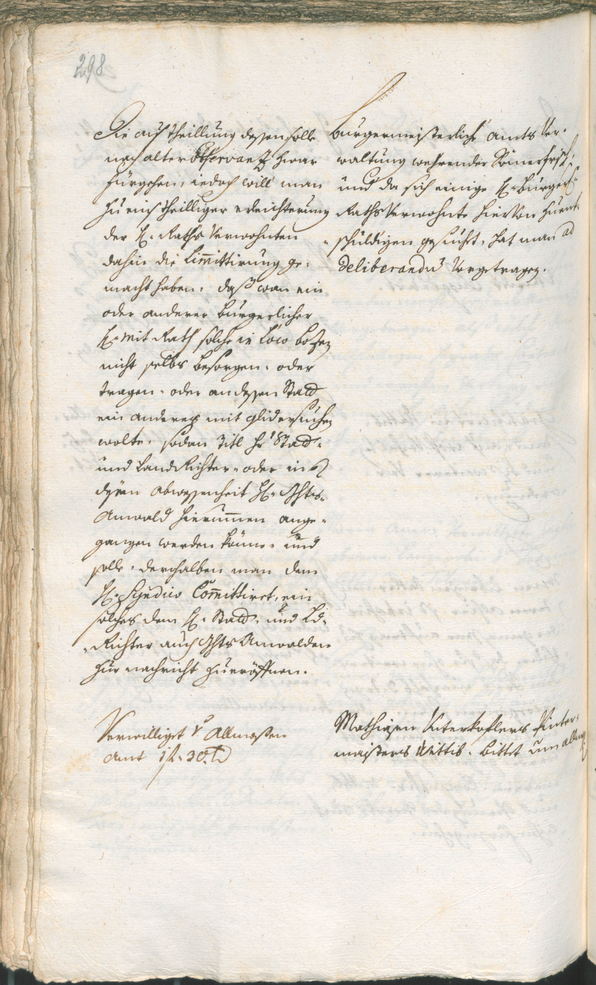 298
Die auß Theillung dessen solle
nach alter Observanz zwar
fürgehen, iedoch will man
zu einßtheilliger erleichterung
der H. Raths Verwohnten
dahin die limitirung ge-
macht haben, daß wan ein
oder anderer Burgerlicher
H. mit Rath solche in loco
nicht selbs besorgen, oder
tragen, oder an dessen Stadt
ein anderer mit
wolte, sodan Titl Hr Stadt-
und LandRichter, oder in
dessen Abwesenheit H. Ghts-
Anwald hierummen ange-
gangen werden könne, und
solle, derohalben man dem
H. Syndico Committiret, ein
solches dem H. Stadt- und Ld-
Richter auch Ghts Anwalden
zur nachricht zu eröffnen.
Verwilliget Allmosen
Amt 1 f. 30 x
Burgermeisterliche Amts Ver-
waltung wehrender
und da sich einige H. Burgerl:
Raths Verwohnte hievon zu ent-
schuldigen gesucht, hat man ad
deliberandum Vorgetragen.
Mathiasen Unterkoflers
maisters Wittib, bittet um